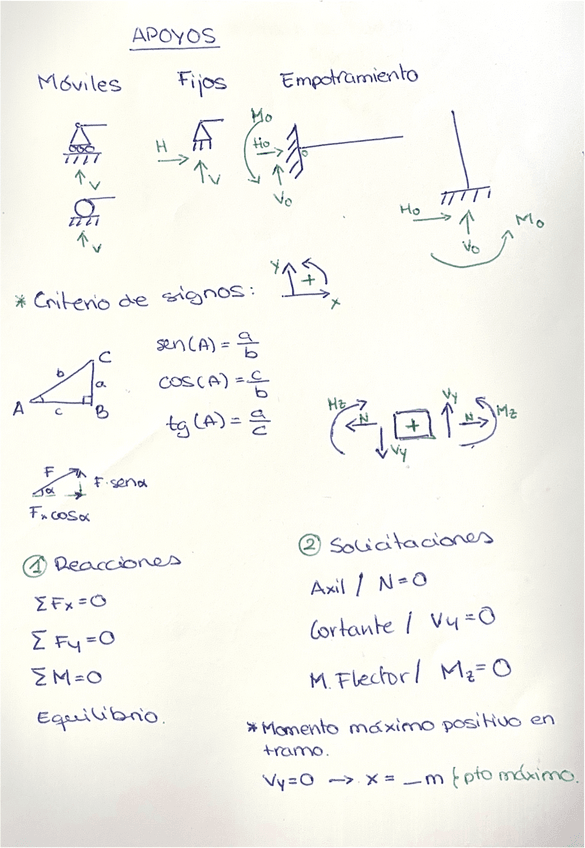 APOYOS
Móviles Fijos Empotramiento
V
V
H
V
Mo
Ho
Vo
Ho
Vo
Mo
* Criterio de signos: y + x
A b C a c B
sen(A) = a/b
cos(A) = c/b
tg(A) = a/c
Mz N Vy + Vy N Mz
F α F·senα
F×cosα
① Reacciones
ΣFx=0
ΣFy=0
ΣM=0
Equilibrio.
② Solicitaciones
Axil / N=0
Cortante / Vy=0
M. Flector / Mz=0
* Momento máximo positivo en
tramo.
Vy=0 → x = _m { pto máximo.